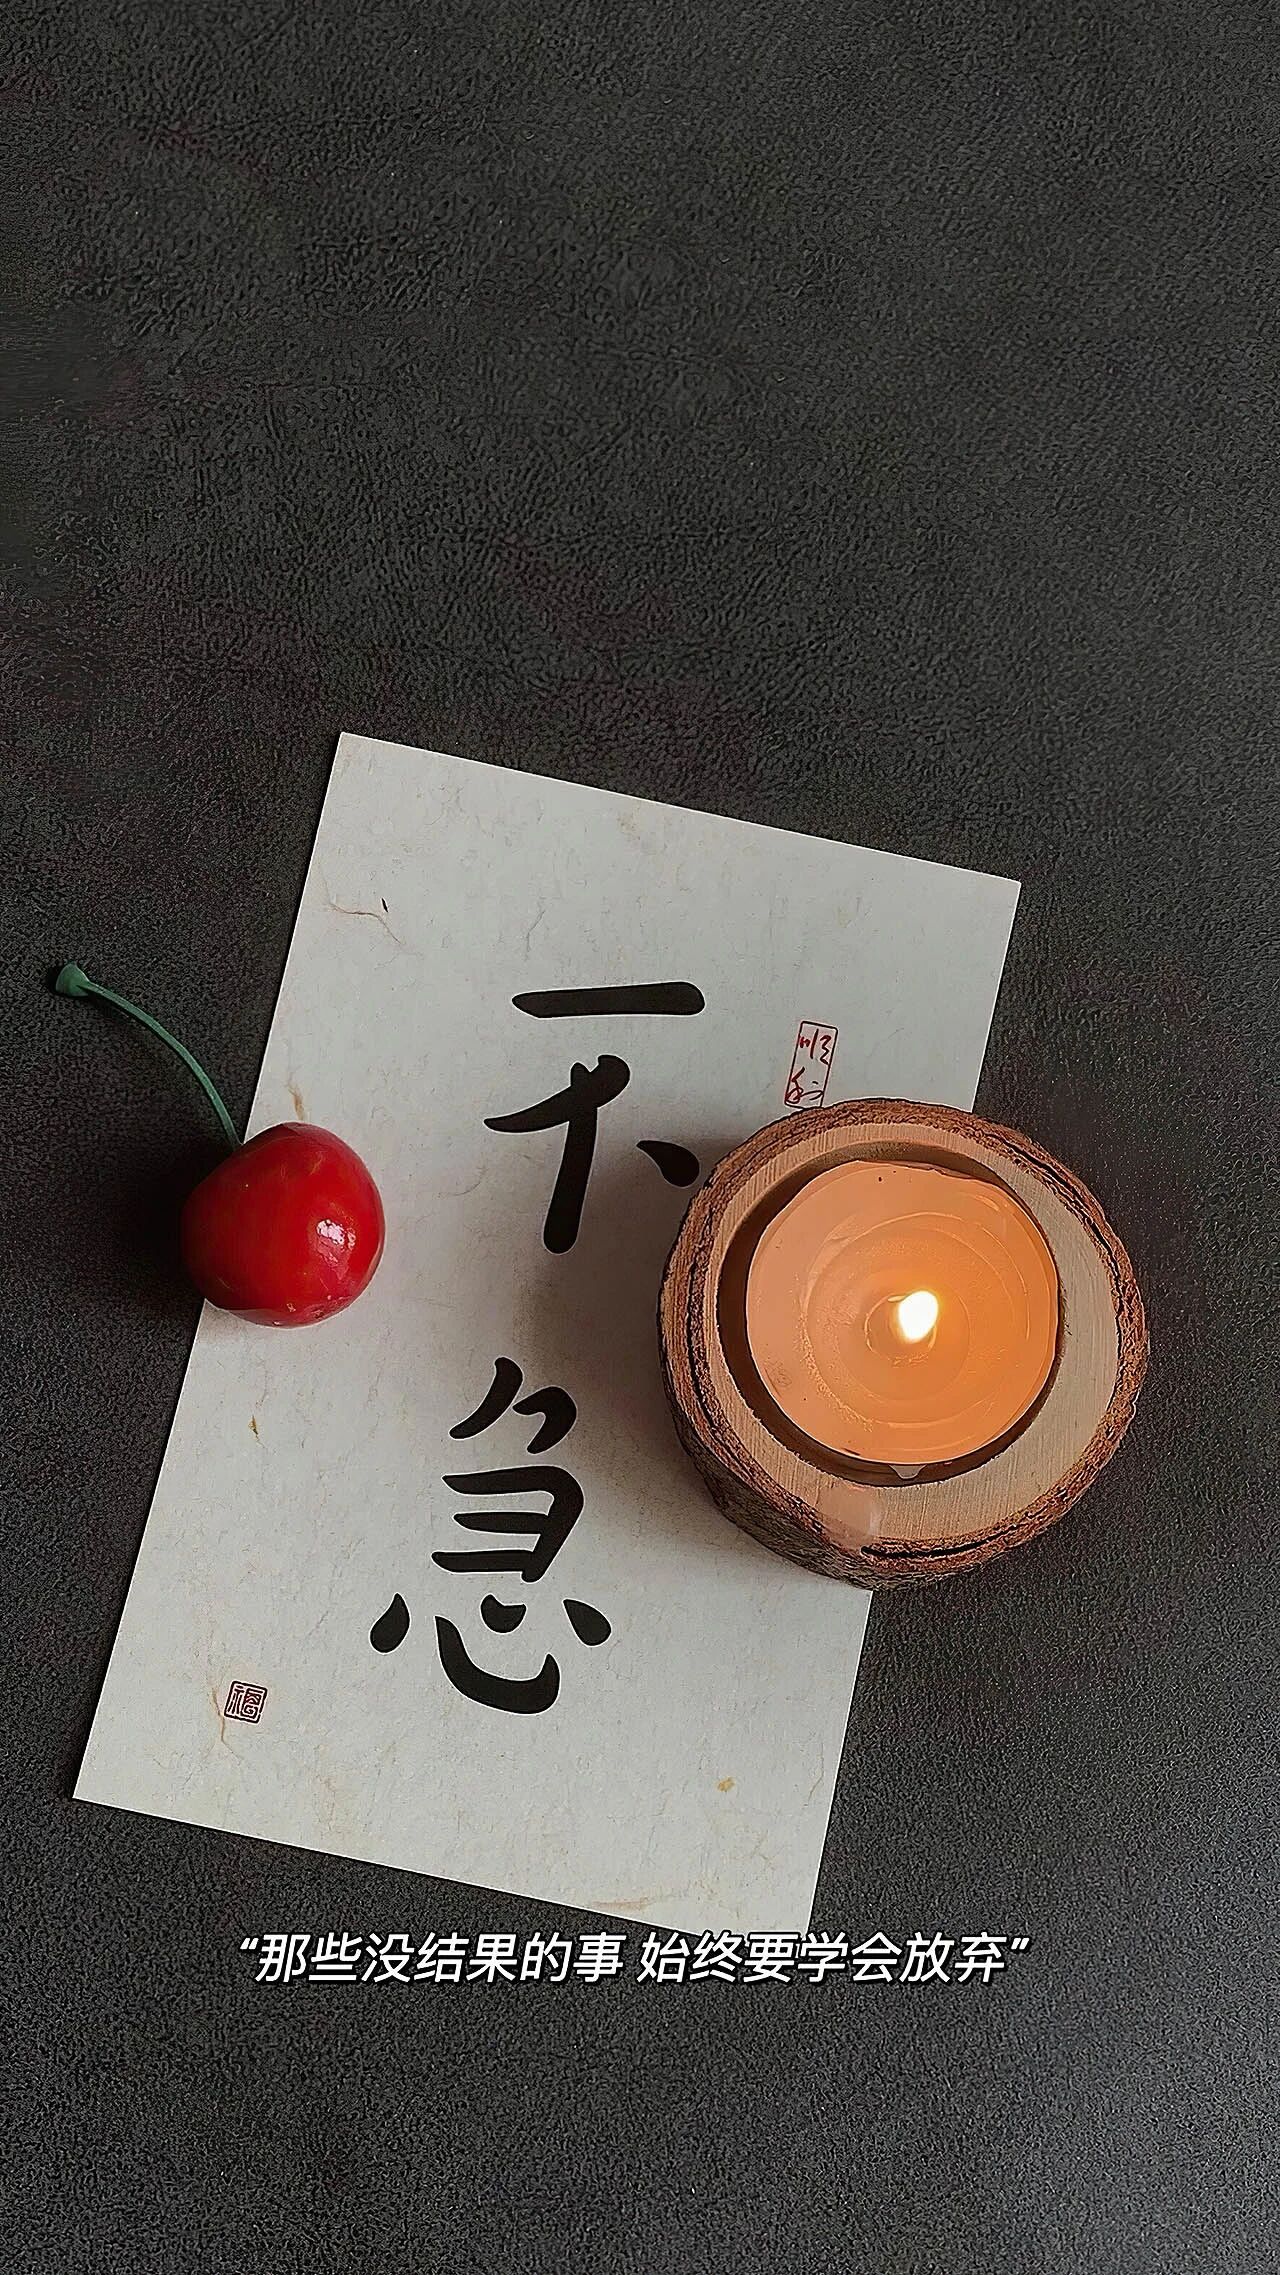 不急
顺利
福
“那些没结果的事 始终要学会放弃”